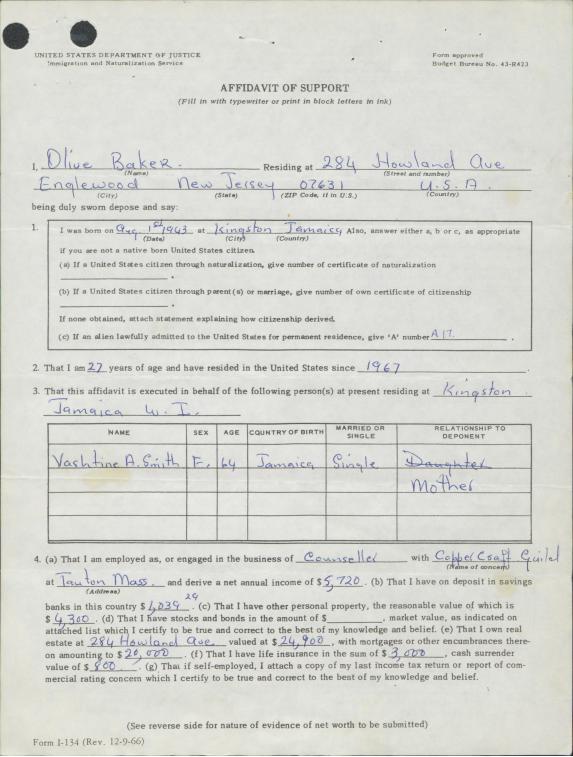 UNITED STATES DEPARTMENT OF JUSTICE
Immigration and Naturalization Service
Form approved
Budget Bureau No. 43-R423
AFFIDAVIT OF SUPPORT
(Fill in with typewriter or print in block letters in ink)
I, Olive Baker. Residing at 284 Howland Ave
(Name) (Street and number)
Englewood New Jersey 07631 U.S.A.
(City) (State) (ZIP Code, if in U.S.) (Country)
being duly sworn depose and say:
1. I was born on Aug 1st 1943 at Kingston Jamaica Also, answer either a, b or c, as appropriate
(Date) (City) (Country)
if you are not a native born United States citizen.
(a) If a United States citizen through naturalization, give number of certificate of naturalization
.
(b) If a United States citizen through parent(s) or marriage, give number of own certificate of citizenship
.
If none obtained, attach statement explaining how citizenship derived.
(c) If an alien lawfully admitted to the United States for permanent residence, give 'A' number A17.
2. That I am 27 years of age and have resided in the United States since 1967.
3. That this affidavit is executed in behalf of the following person(s) at present residing at Kingston
Jamaica W.I.
NAME SEX AGE COUNTRY OF BIRTH MARRIED OR SINGLE RELATIONSHIP TO DEPONENT
Vashtine A. Smith F. 64 Jamaica Single Daughter
Mother
4. (a) That I am employed as, or engaged in the business of Counseller with Copper Craft Guild
(Name of concern)
at Tauton Mass. and derive a net annual income of $5,720. (b) That I have on deposit in savings
(Address)
banks in this country $1,039 29. (c) That I have other personal property, the reasonable value of which is
$4,300. (d) That I have stocks and bonds in the amount of $, market value, as indicated on
attached list which I certify to be true and correct to the best of my knowledge and belief. (e) That I own real
estate at 284 Howland Ave valued at $24,900, with mortgages or other encumbrances there-
on amounting to $20,000. (f) That I have life insurance in the sum of $3,000, cash surrender
value of $800. (g) That if self-employed, I attach a copy of my last income tax return or report of com-
mercial rating concern which I certify to be true and correct to the best of my knowledge and belief.
(See reverse side for nature of evidence of net worth to be submitted)
Form I-134 (Rev. 12-9-66)